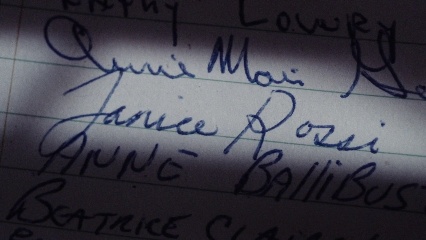 Lowry
Annie Mari
Janice Rossi
ANNE BAlliBUS
BEATRICE